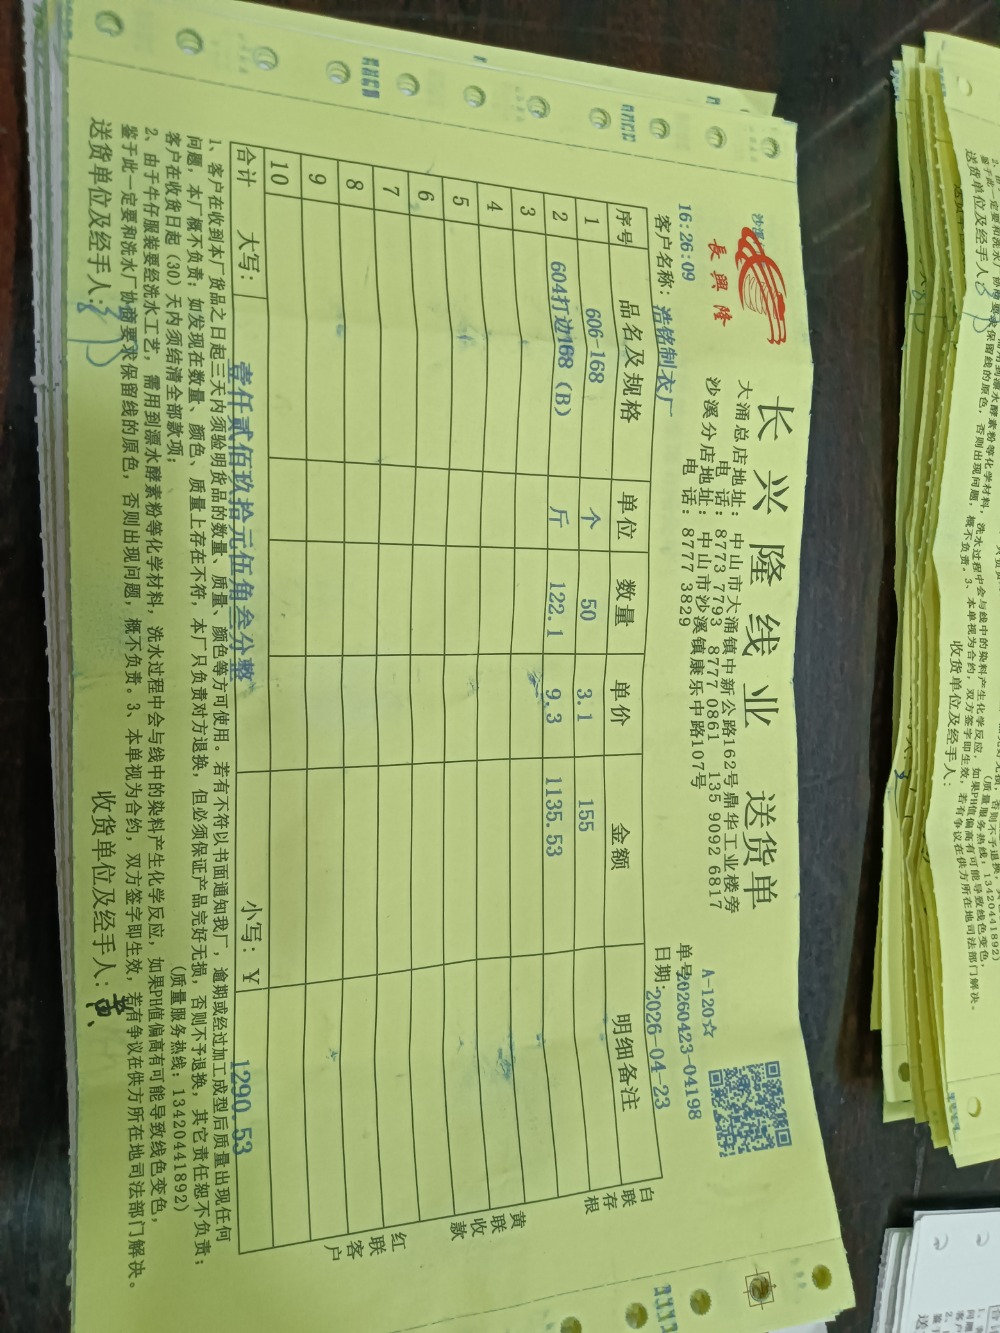 沙溪
長興隆
长兴隆线业 送货单
大涌总店地址：中山市大涌镇中新公路162号鼎华工业楼旁
电话：8773 7793 8777 0861 135 9092 6817
沙溪分店地址：中山市沙溪镇康乐中路107号
电话：8777 3829
A-120☆
单号20260423-04198
16:26:09
客户名称：浩铭制衣厂
日期：2026-04-23
序号 品名及规格 单位 数量 单价 金额 明细备注
1 606-168 个 50 3.1 155
2 604打边168（B） 斤 122.1 9.3 1135.53
3
4
5
6
7
8
9
10
合计 大写：壹仟贰佰玖拾元伍角叁分整 小写：￥ 1290.53
白联存根
黄联收款
红联客户
1、客户在收到本厂货品之日起三天内须验明货品的数量、质量、颜色等方可使用。若有不符以书面通知我厂，逾期或经过加工成型后质量出现任何
问题，本厂概不负责；如发现在数量、颜色、质量上存在不符，本厂只负责对方退换，但必须保证产品完好无损，否则不予退换，其它责任恕不负责；
客户在收货日起（30）天内须结清全部款项； （质量服务热线：13420441892）
2、由于牛仔服装要经洗水工艺，需用到漂水酵素粉等化学材料，洗水过程中会与线中的染料产生化学反应，如果PH值偏高有可能导致线色变色，
鉴于此一定要和洗水厂协商要求保留线的原色，否则出现问题，概不负责。3、本单视为合约，双方签字即生效，若有争议在供方所在地司法部门解决。
送货单位及经手人： 收货单位及经手人：
送货单位及经手人：
收货单位及经手人：